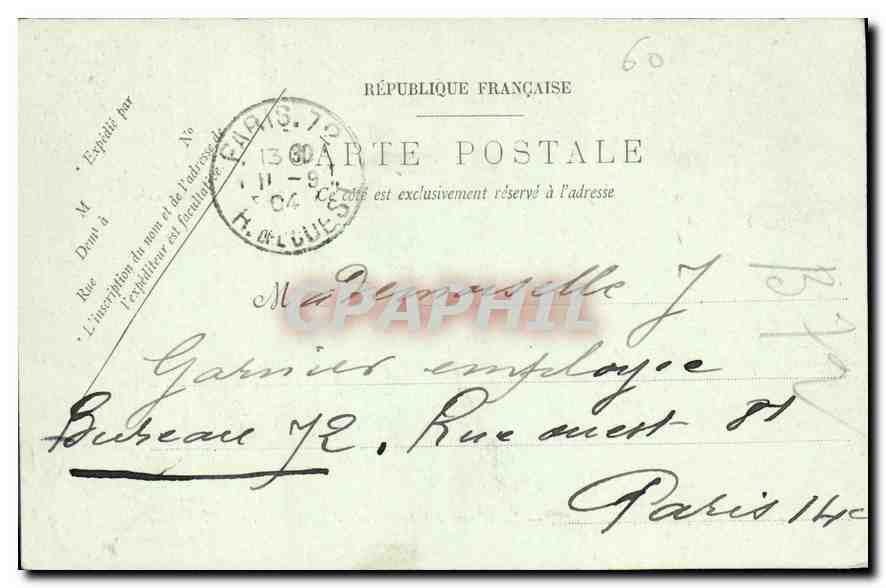 60
RÉPUBLIQUE FRANÇAISE
CARTE POSTALE
Ce côté est exclusivement réservé à l'adresse
* Expédié par
M
No
Demt à
Rue
* L'inscription du nom et de l'adresse de
l'expéditeur est facultative
PARIS.72
11 -9
04
R. DE L'OUEST
Mademoiselle J
Garnier employée
Bureau 72, Rue ouest 81
Paris 14e
B 72
CPAPHIL